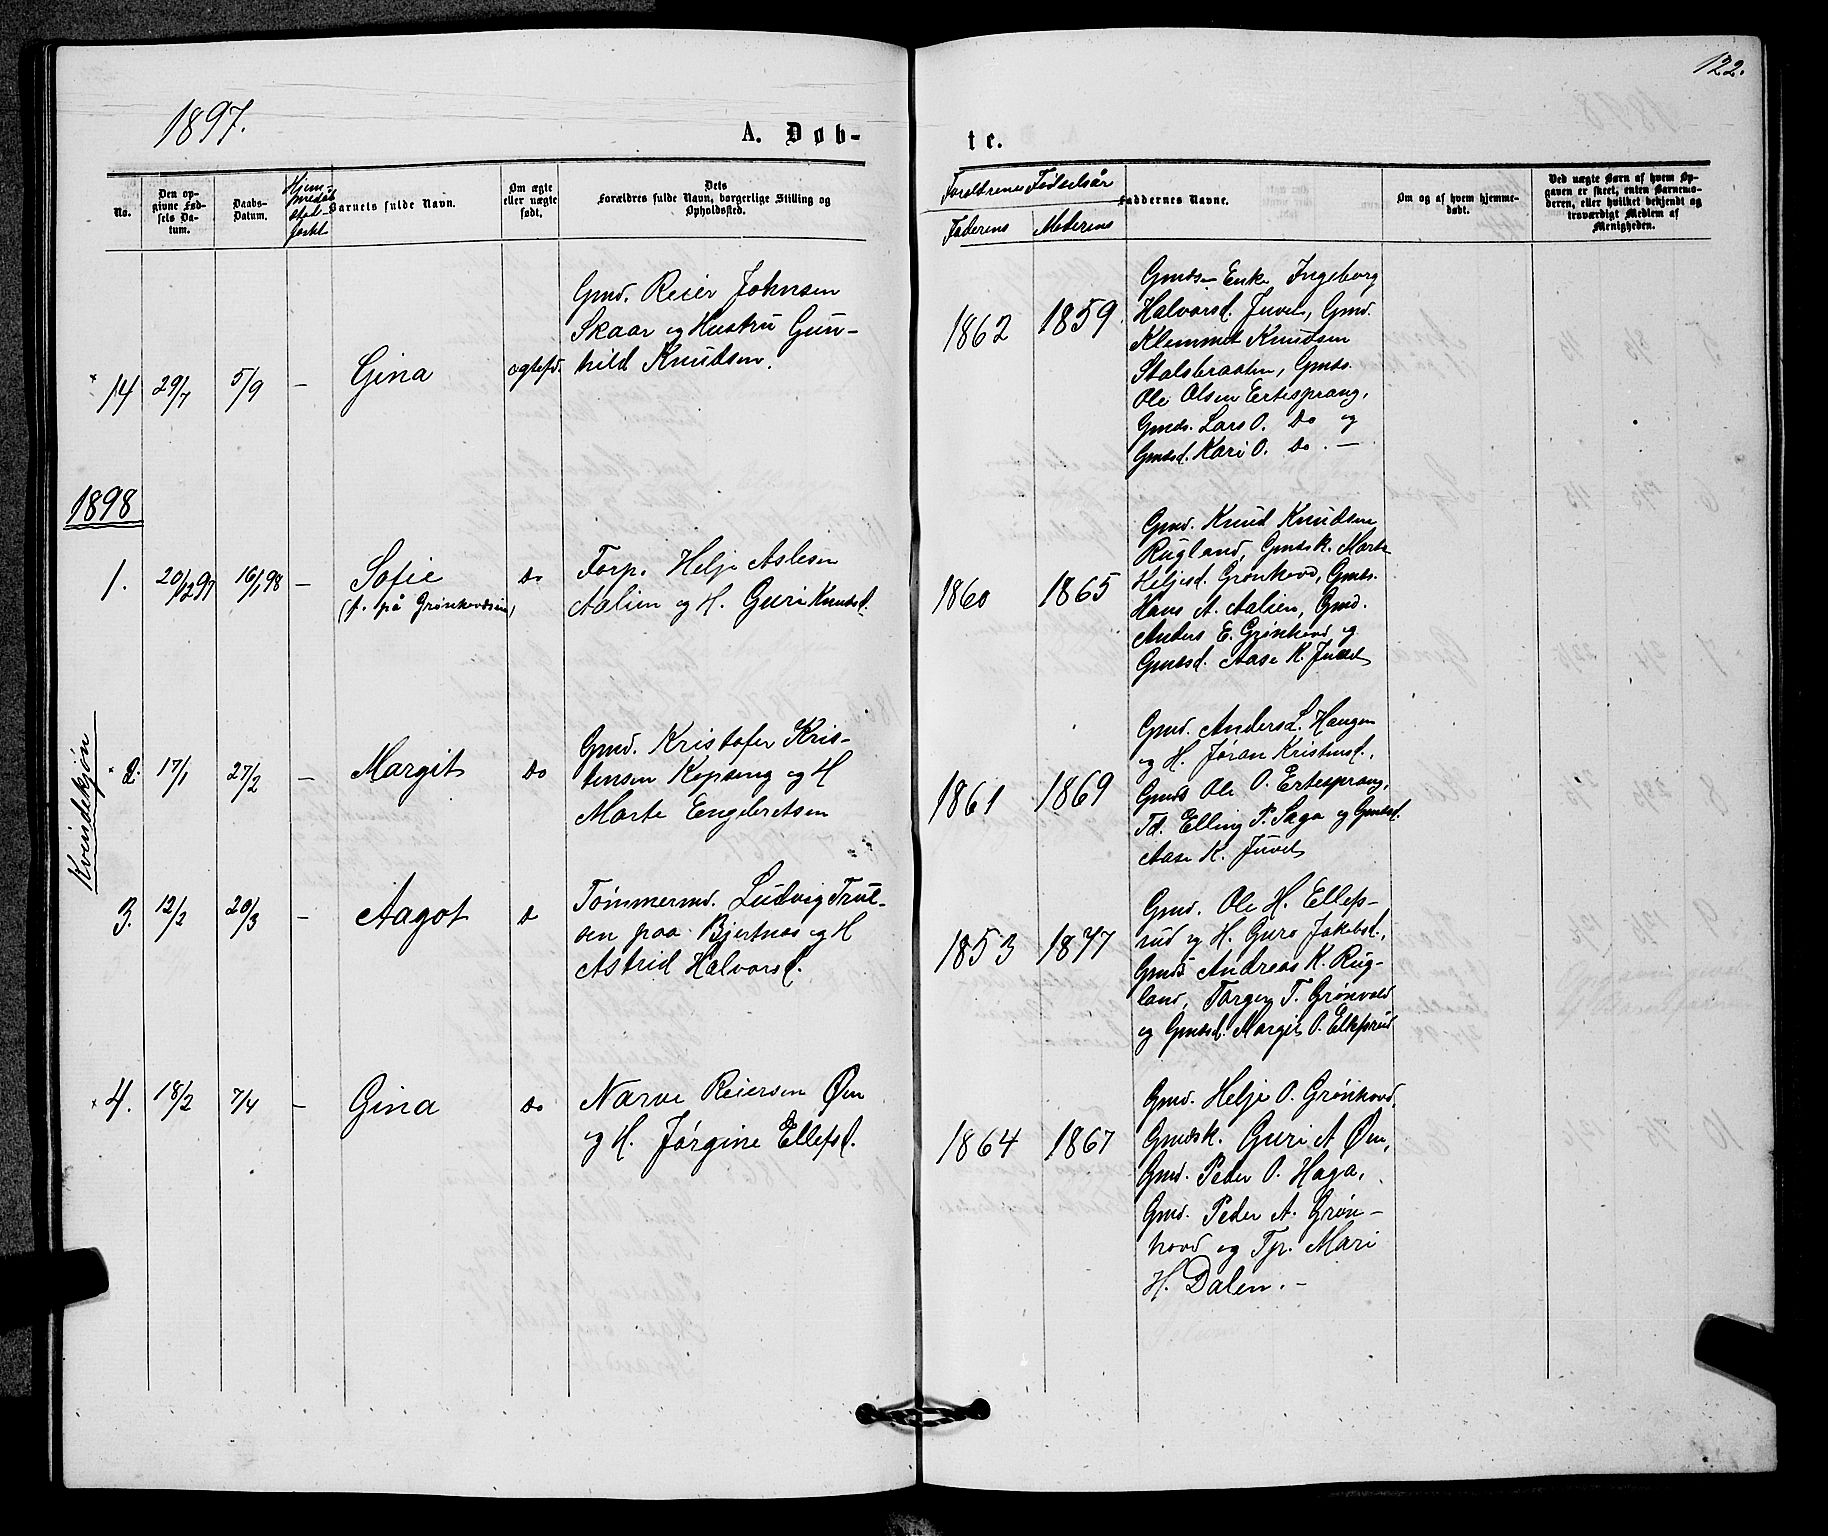 122.
1897.
A. Døb-
te.
No.
Den op-
givne Fød-
sels Da-
tum.
Daabs-
Datum.
Barnets fulde Navn.
Om ægte
eller uægte
født.
Dets
Forældres fulde Navn, borgerlige Stilling og
Opholdssted.
Forældrenes Fødselsår
Faderens
Moderens
Faddernes Navne.
Om og af hvem hjemme-
døbt.
Ved uægte Børn af hvem Op-
gaven er skeet, enten Barnemo-
deren, eller hvilket bekjendt og
troværdigt Medlem af
Menigheden.
14 29/7 5/9 – Gina ægtefd.
Gmd. Reier Johnsen
Skaar og Hustru Gun-
hild Knudsen.
1862 1859
Gmds Enke Ingeborg
Halvorsd. Juvet, Gmd.
Klemmet Knudsen
Stalsbraaten, Gmds.
Ole Olsen Ertesprang,
Gmds. Lars O. Do og
Gmdsd. Kari O. Do. –
1898
Kvindekjøn
1. 20/12 97 16/1 98 – Sofie
(f. på Grønhovdseie)
Do
Forp. Helje Aslesen
Aalien og H. Guri Knudsd.
1860 1865
Gmd. Knud Knudsen
Rugland, Gmdsk. Marte
Heljesd. Grønhovd, Gmds.
Hans A. Aalien, Gmd.
Anders E. Grønhovd og
Gmdsd. Aase K. Juvet
2. 17/1 27/2 – Margit Do
Gmd. Kristofer Kris-
tensen Kopseng og H
Marte Engebretsen
1861 1869
Gmd. Anders L. Haugen
og H. Jøran Kristensd.,
Gmds Ole O. Ertesprang,
Td. Elling P. Saga og Gmdsd.
Aase K. Juvet
3. 12/2 20/3 – Aagot Do
Tømmermd. Ludvig Trul-
sen paa Bjertnæs og H
Astrid Halvorsd.
1853 1877
Gmd. Ole H. Ellefs-
rud og H. Guro Jakobsd.,
Gmds Andreas K. Rug-
land, Torger T. Grønvold
og Gmdsd. Margit O. Ellefsrud
4. 18/2 7/4 – Gina Do
Narve Reiersen Øen
og H. Jørgine Ellefsd.
1864 1867
Gmd. Helje O. Grønhovd,
Gmdsk. Guri A Øen,
Gmd. Peder O. Haga,
Gmd. Peder A. Grøn-
hovd og Tp. Mari
H. Dalen. –